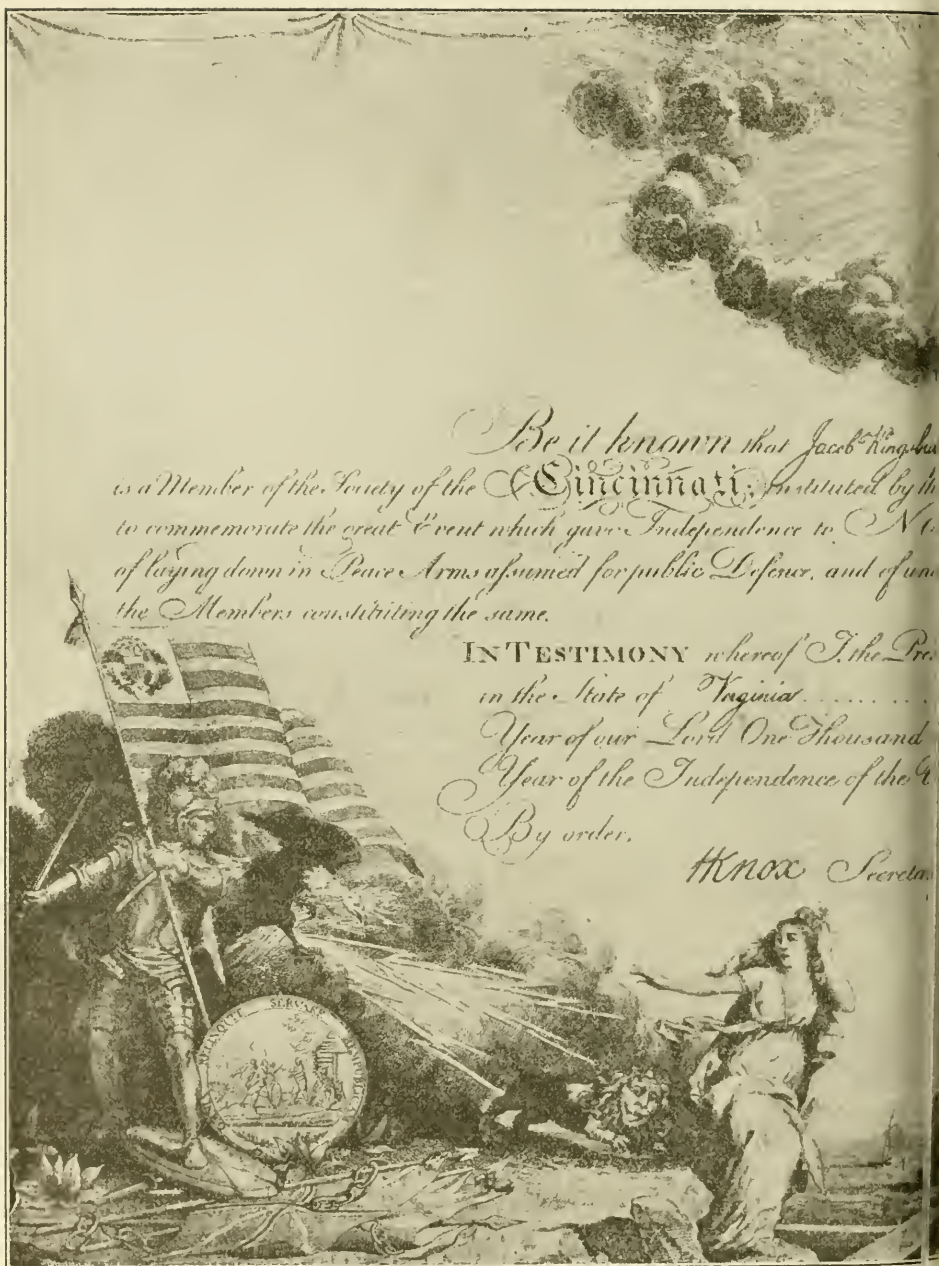 Be it known that Jacob Kingsbu
is a Member of the Society of the Cincinnati; instituted by th
to commemorate the great Event which gave Independence to N
of laying down in Peace Arms assumed for public Defence, and of uni
the Members constituting the same.
IN TESTIMONY whereof I, the Pre
in the State of Virginia
Year of our Lord One Thousand
Year of the Independence of the
By order,
HKnox Secreta
RELINQUIT SERVARE